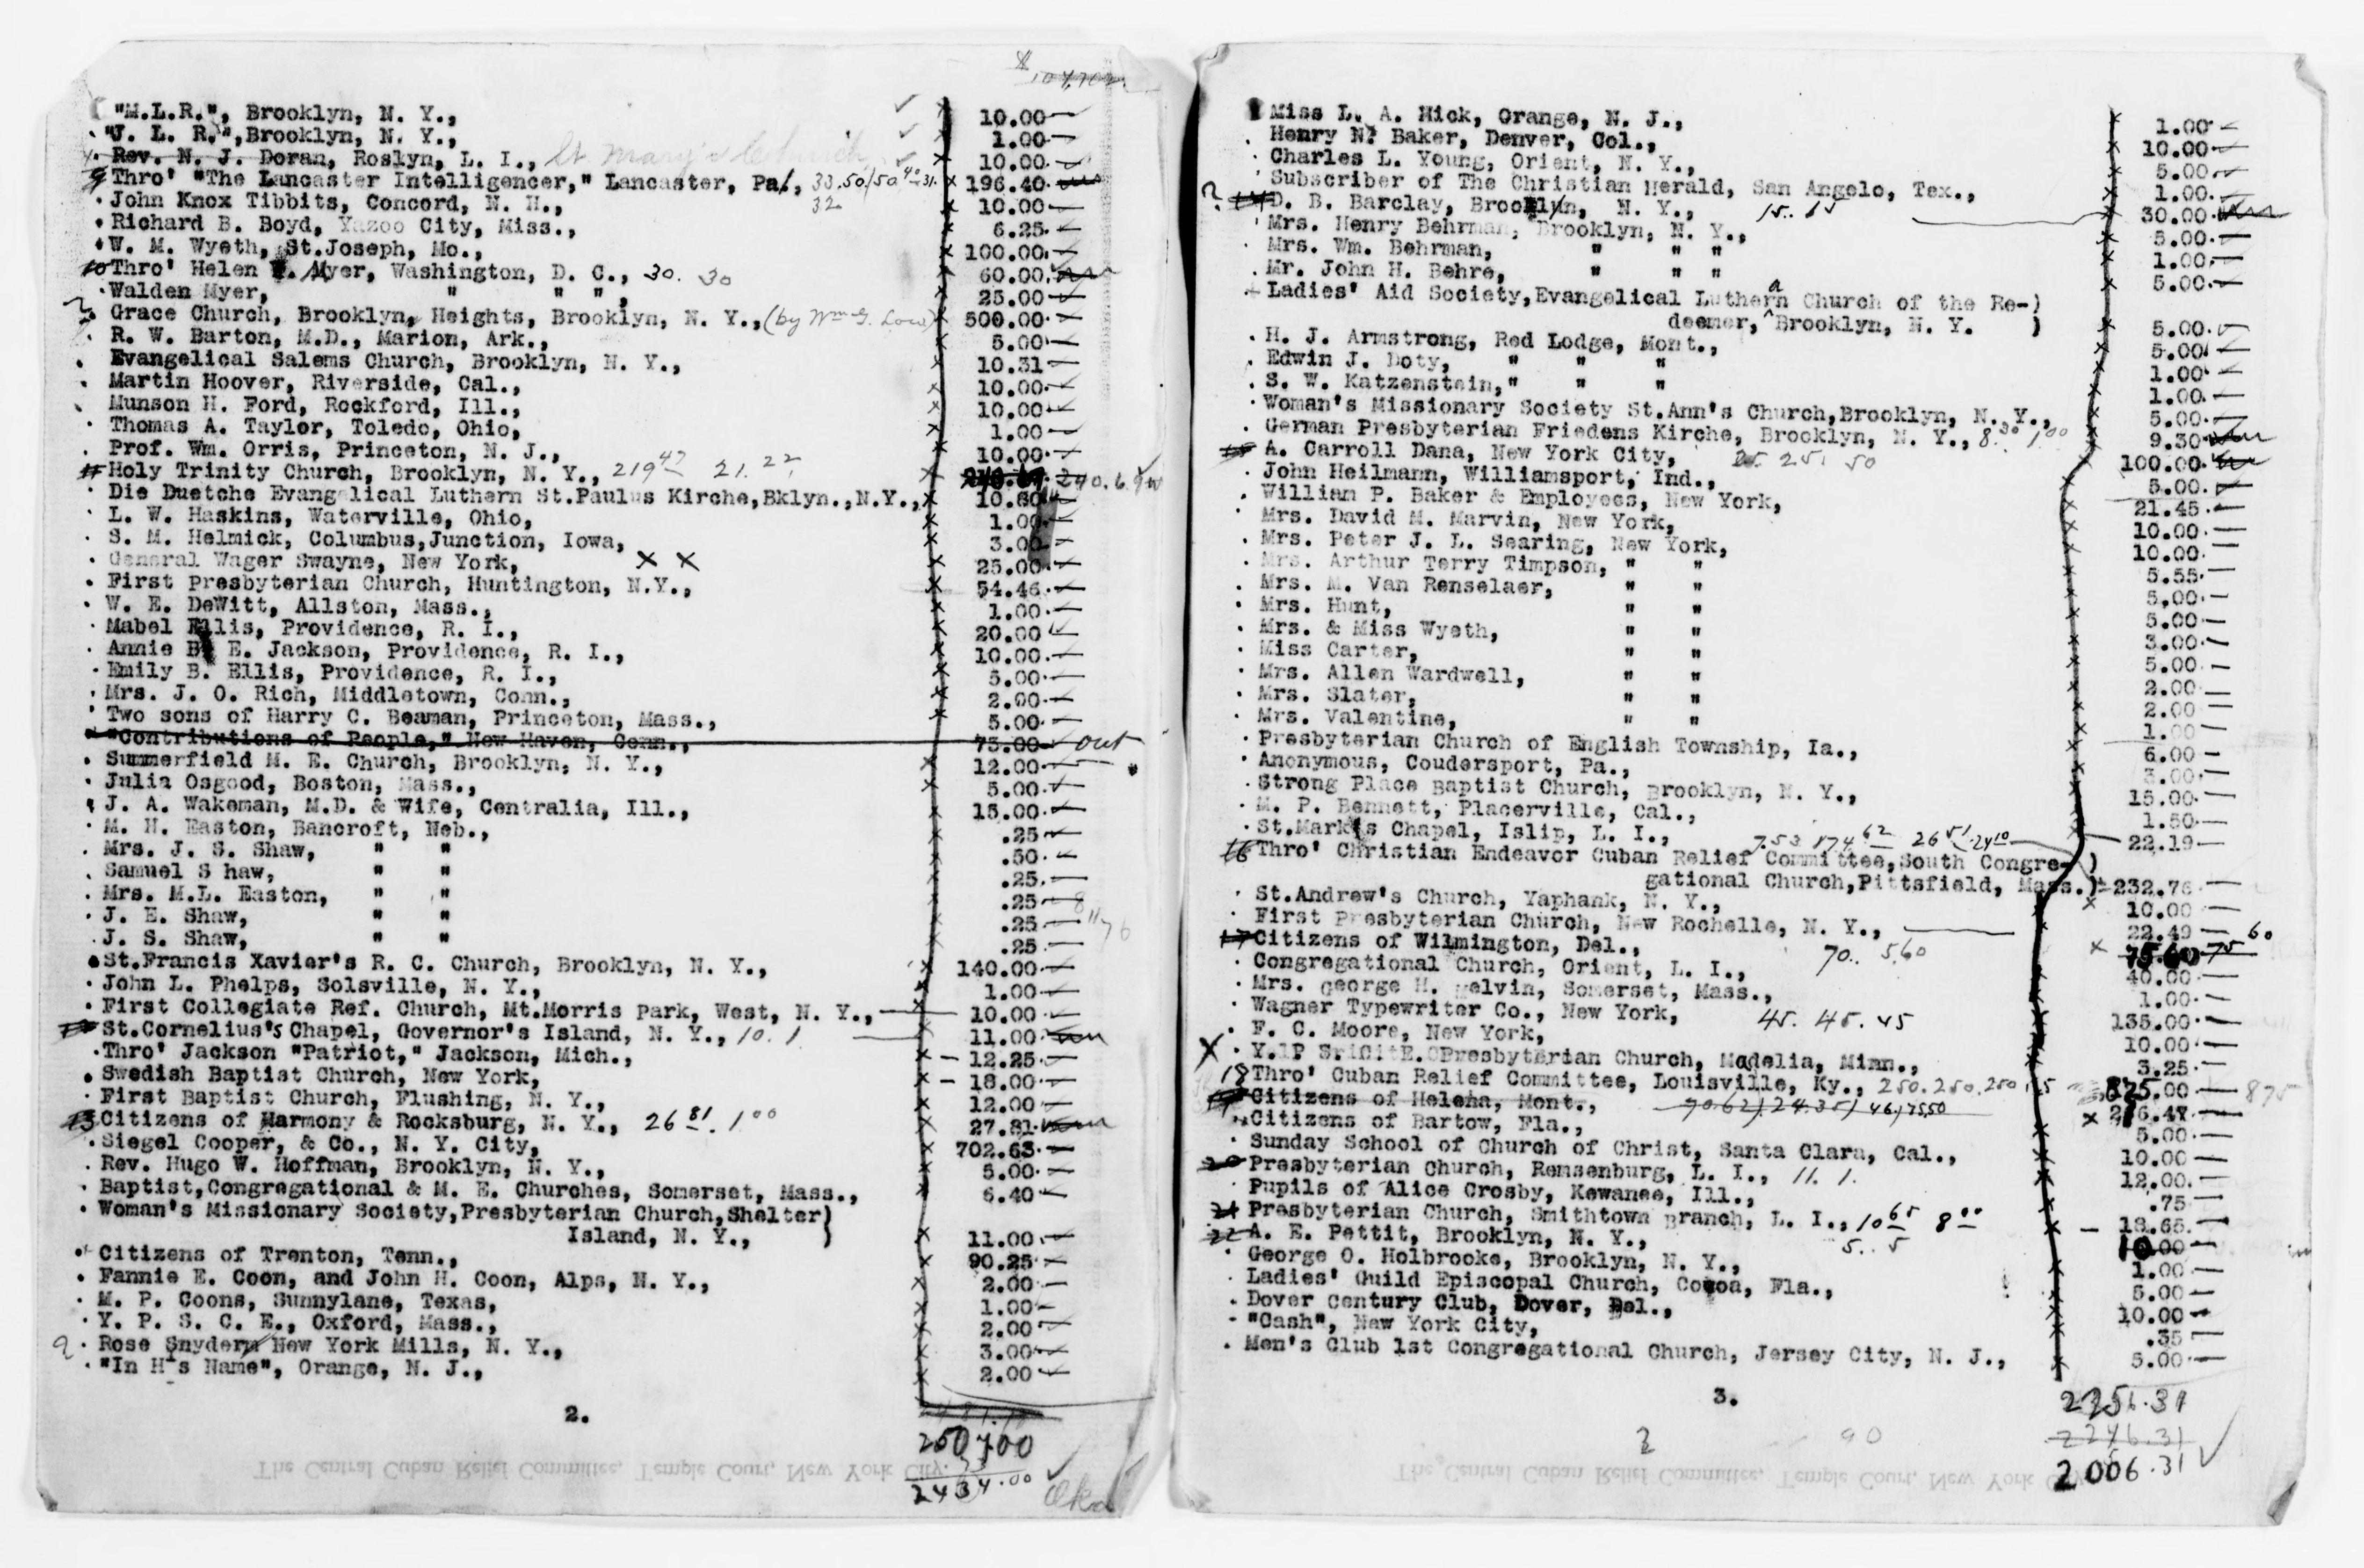 "M.L.R.", Brooklyn, N. Y., 10.00
"J. L. R.",Brooklyn, N. Y., 1.00
Rev. N. J. Doran, Roslyn, L. I., St Mary's Church 10.00
9 Thro' "The Lancaster Intelligencer," Lancaster, Pa., 33.50/50 196.40
32
John Knox Tibbits, Concord, N. H., 10.00
Richard B. Boyd, Yazoo City, Miss., 6.25
W. M. Wyeth, St.Joseph, Mo., 100.00
10 Thro' Helen Myer, Washington, D. C., 30. 30 60.00
Walden Myer, " " ", 25.00
Grace Church, Brooklyn, Heights, Brooklyn, N. Y., (by Wm G. Low) 500.00
R. W. Barton, M.D., Marion, Ark., 5.00
Evangelical Salems Church, Brooklyn, N. Y., 10.31
Martin Hoover, Riverside, Cal., 10.00
Munson H. Ford, Rockford, Ill., 10.00
Thomas A. Taylor, Toledo, Ohio, 1.00
Prof. Wm. Orris, Princeton, N. J., 10.00
11 Holy Trinity Church, Brooklyn, N. Y., 219 47 21. 22 240.69
Die Duetche Evangelical Luthern St.Paulus Kirche,Bklyn.,N.Y., 10.60
L. W. Haskins, Waterville, Ohio, 1.00
S. M. Helmick, Columbus,Junction, Iowa, 3.00
General Wager Swayne, New York, X X 25.00
First Presbyterian Church, Huntington, N.Y., 54.46
W. E. DeWitt, Allston, Mass., 1.00
Mabel Ellis, Providence, R. I., 20.00
Annie B. E. Jackson, Providence, R. I., 10.00
Emily B. Ellis, Providence, R. I., 5.00
Mrs. J. O. Rich, Middletown, Conn., 2.00
Two sons of Harry C. Beaman, Princeton, Mass., 5.00
"Contributions of People," New Haven, Conn., 75.00 out
Summerfield M. E. Church, Brooklyn, N. Y., 12.00
Julia Osgood, Boston, Mass., 5.00
J. A. Wakeman, M.D. & Wife, Centralia, Ill., 15.00
M. H. Easton, Bancroft, Neb., .25
Mrs. J. S. Shaw, " " .50
Samuel S haw, " " .25
Mrs. M.L. Easton, " " .25
J. E. Shaw, " " .25
J. S. Shaw, " " .25
St.Francis Xavier's R. C. Church, Brooklyn, N. Y., 140.00
John L. Phelps, Solsville, N. Y., 1.00
First Collegiate Ref. Church, Mt.Morris Park, West, N. Y., 10.00
12 St.Cornelius's Chapel, Governor's Island, N. Y., 10. 1 11.00
Thro' Jackson "Patriot," Jackson, Mich., 12.25
Swedish Baptist Church, New York, 18.00
First Baptist Church, Flushing, N. Y., 12.00
13 Citizens of Harmony & Rocksburg, N. Y., 26 81. 1 00 27.81
Siegel Cooper, & Co., N. Y. City, 702.63
Rev. Hugo W. Hoffman, Brooklyn, N. Y., 5.00
Baptist,Congregational & M. E. Churches, Somerset, Mass., 6.40
Woman's Missionary Society,Presbyterian Church,Shelter)
Island, N. Y., ) 11.00
Citizens of Trenton, Tenn., 90.25
Fannie E. Coon, and John H. Coon, Alps, N. Y., 2.00
M. P. Coons, Sunnylane, Texas, 1.00
Y. P. S. C. E., Oxford, Mass., 2.00
Rose Snyder, New York Mills, N. Y., 3.00
"In His Name", Orange, N. J., 2.00
2.
2434.00
The Central Cuban Relief Committee, Temple Court, New York City.
Miss L. A. Hick, Orange, N. J., 1.00
Henry N. Baker, Denver, Col., 10.00
Charles L. Young, Orient, N. Y., 5.00
Subscriber of The Christian Herald, San Angelo, Tex., 1.00
14 D. B. Barclay, Brooklyn, N. Y., 15. 15 30.00
Mrs. Henry Behrman, Brooklyn, N. Y., 5.00
Mrs. Wm. Behrman, " " " 1.00
Mr. John H. Behre, " " " 5.00
Ladies' Aid Society,Evangelical Luthern Church of the Re-)
deemer, Brooklyn, N. Y. ) 5.00
H. J. Armstrong, Red Lodge, Mont., 5.00
Edwin J. Doty, " " " 1.00
S. W. Katzenstein," " " 1.00
Woman's Missionary Society St.Ann's Church,Brooklyn, N. Y., 5.00
German Presbyterian Friedens Kirche, Brooklyn, N. Y., 8.30 1.00 9.30
15 A. Carroll Dana, New York City, 25. 25. 50 100.00
John Heilmann, Williamsport, Ind., 5.00
William P. Baker & Employees, New York, 21.45
Mrs. David M. Marvin, New York, 10.00
Mrs. Peter J. L. Searing, New York, 10.00
Mrs. Arthur Terry Timpson, " " 5.55
Mrs. M. Van Renselaer, " " 5.00
Mrs. Hunt, " " 5.00
Mrs. & Miss Wyeth, " " 3.00
Miss Carter, " " 5.00
Mrs. Allen Wardwell, " " 2.00
Mrs. Slater, " " 2.00
Mrs. Valentine, " " 1.00
Presbyterian Church of English Township, Ia., 6.00
Anonymous, Coudersport, Pa., 3.00
Strong Place Baptist Church, Brooklyn, N. Y., 15.00
M. P. Bennett, Placerville, Cal., 1.50
St.Mark's Chapel, Islip, L. I., 22.19
16 Thro' Christian Endeavor Cuban Relief Committee,South Congre-)
gational Church,Pittsfield, Mass.) 232.76
St.Andrew's Church, Yaphank, N. Y., 10.00
First Presbyterian Church, New Rochelle, N. Y., 22.49
17 Citizens of Wilmington, Del., 70. 5.60 75.60 75 60
Congregational Church, Orient, L. I., 40.00
Mrs. George H. Melvin, Somerset, Mass., 1.00
Wagner Typewriter Co., New York, 45. 45. 45 135.00
F. C. Moore, New York, 10.00
X Presbyterian Church, Madelia, Minn., 3.25
18 Thro' Cuban Relief Committee, Louisville, Ky., 250. 250. 250 875.00 875
19 Citizens of Helena, Mont., 216.47
Citizens of Bartow, Fla., 5.00
Sunday School of Church of Christ, Santa Clara, Cal., 10.00
20 Presbyterian Church, Remsenburg, L. I., 11. 1. 12.00
Pupils of Alice Crosby, Kewanee, Ill., .75
21 Presbyterian Church, Smithtown Branch, L. I., 10 65 8 00 18.65
22 A. E. Pettit, Brooklyn, N. Y., 5. 5 10.00
George O. Holbrooke, Brooklyn, N. Y., 1.00
Ladies' Guild Episcopal Church, Cocoa, Fla., 5.00
Dover Century Club, Dover, Del., 10.00
"Cash", New York City, .35
Men's Club 1st Congregational Church, Jersey City, N. J., 5.00
3.
2246.31
2006.31
The Central Cuban Relief Committee, Temple Court, New York